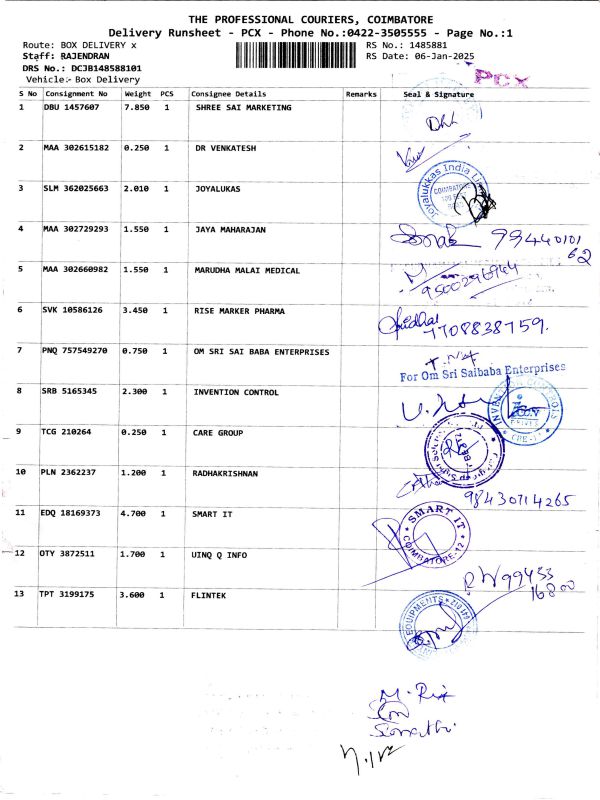 THE PROFESSIONAL COURIERS, COIMBATORE
Delivery Runsheet - PCX - Phone No.:0422-3505555 - Page No.:1
Route: BOX DELIVERY x
RS No.: 1485881
Staff: RAJENDRAN
RS Date: 06-Jan-2025
DRS No.: DCJB148588101
Vehicle:- Box Delivery
PCX
S No Consignment No Weight PCS Consignee Details Remarks Seal & Signature
1 DBU 1457607 7.850 1 SHREE SAI MARKETING
2 MAA 302615182 0.250 1 DR VENKATESH
3 SLM 362025663 2.010 1 JOYALUKAS
Joyalukkas India
COIMBATORE
4 MAA 302729293 1.550 1 JAYA MAHARAJAN
99440101
62
5 MAA 302660982 1.550 1 MARUDHA MALAI MEDICAL
9500296964
6 SVK 10586126 3.450 1 RISE MARKER PHARMA
7708838759.
7 PNQ 757549270 0.750 1 OM SRI SAI BABA ENTERPRISES
For Om Sri Saibaba Enterprises
8 SRB 5165345 2.300 1 INVENTION CONTROL
INVENTION CONTROLS
9 TCG 210264 0.250 1 CARE GROUP
10 PLN 2362237 1.200 1 RADHAKRISHNAN
98430714265
11 EDQ 18169373 4.700 1 SMART IT
SMART IT
COIMBATORE-12
12 OTY 3872511 1.700 1 UINQ Q INFO
99433
16800
13 TPT 3199175 3.600 1 FLINTEK
EQUIPMENTS